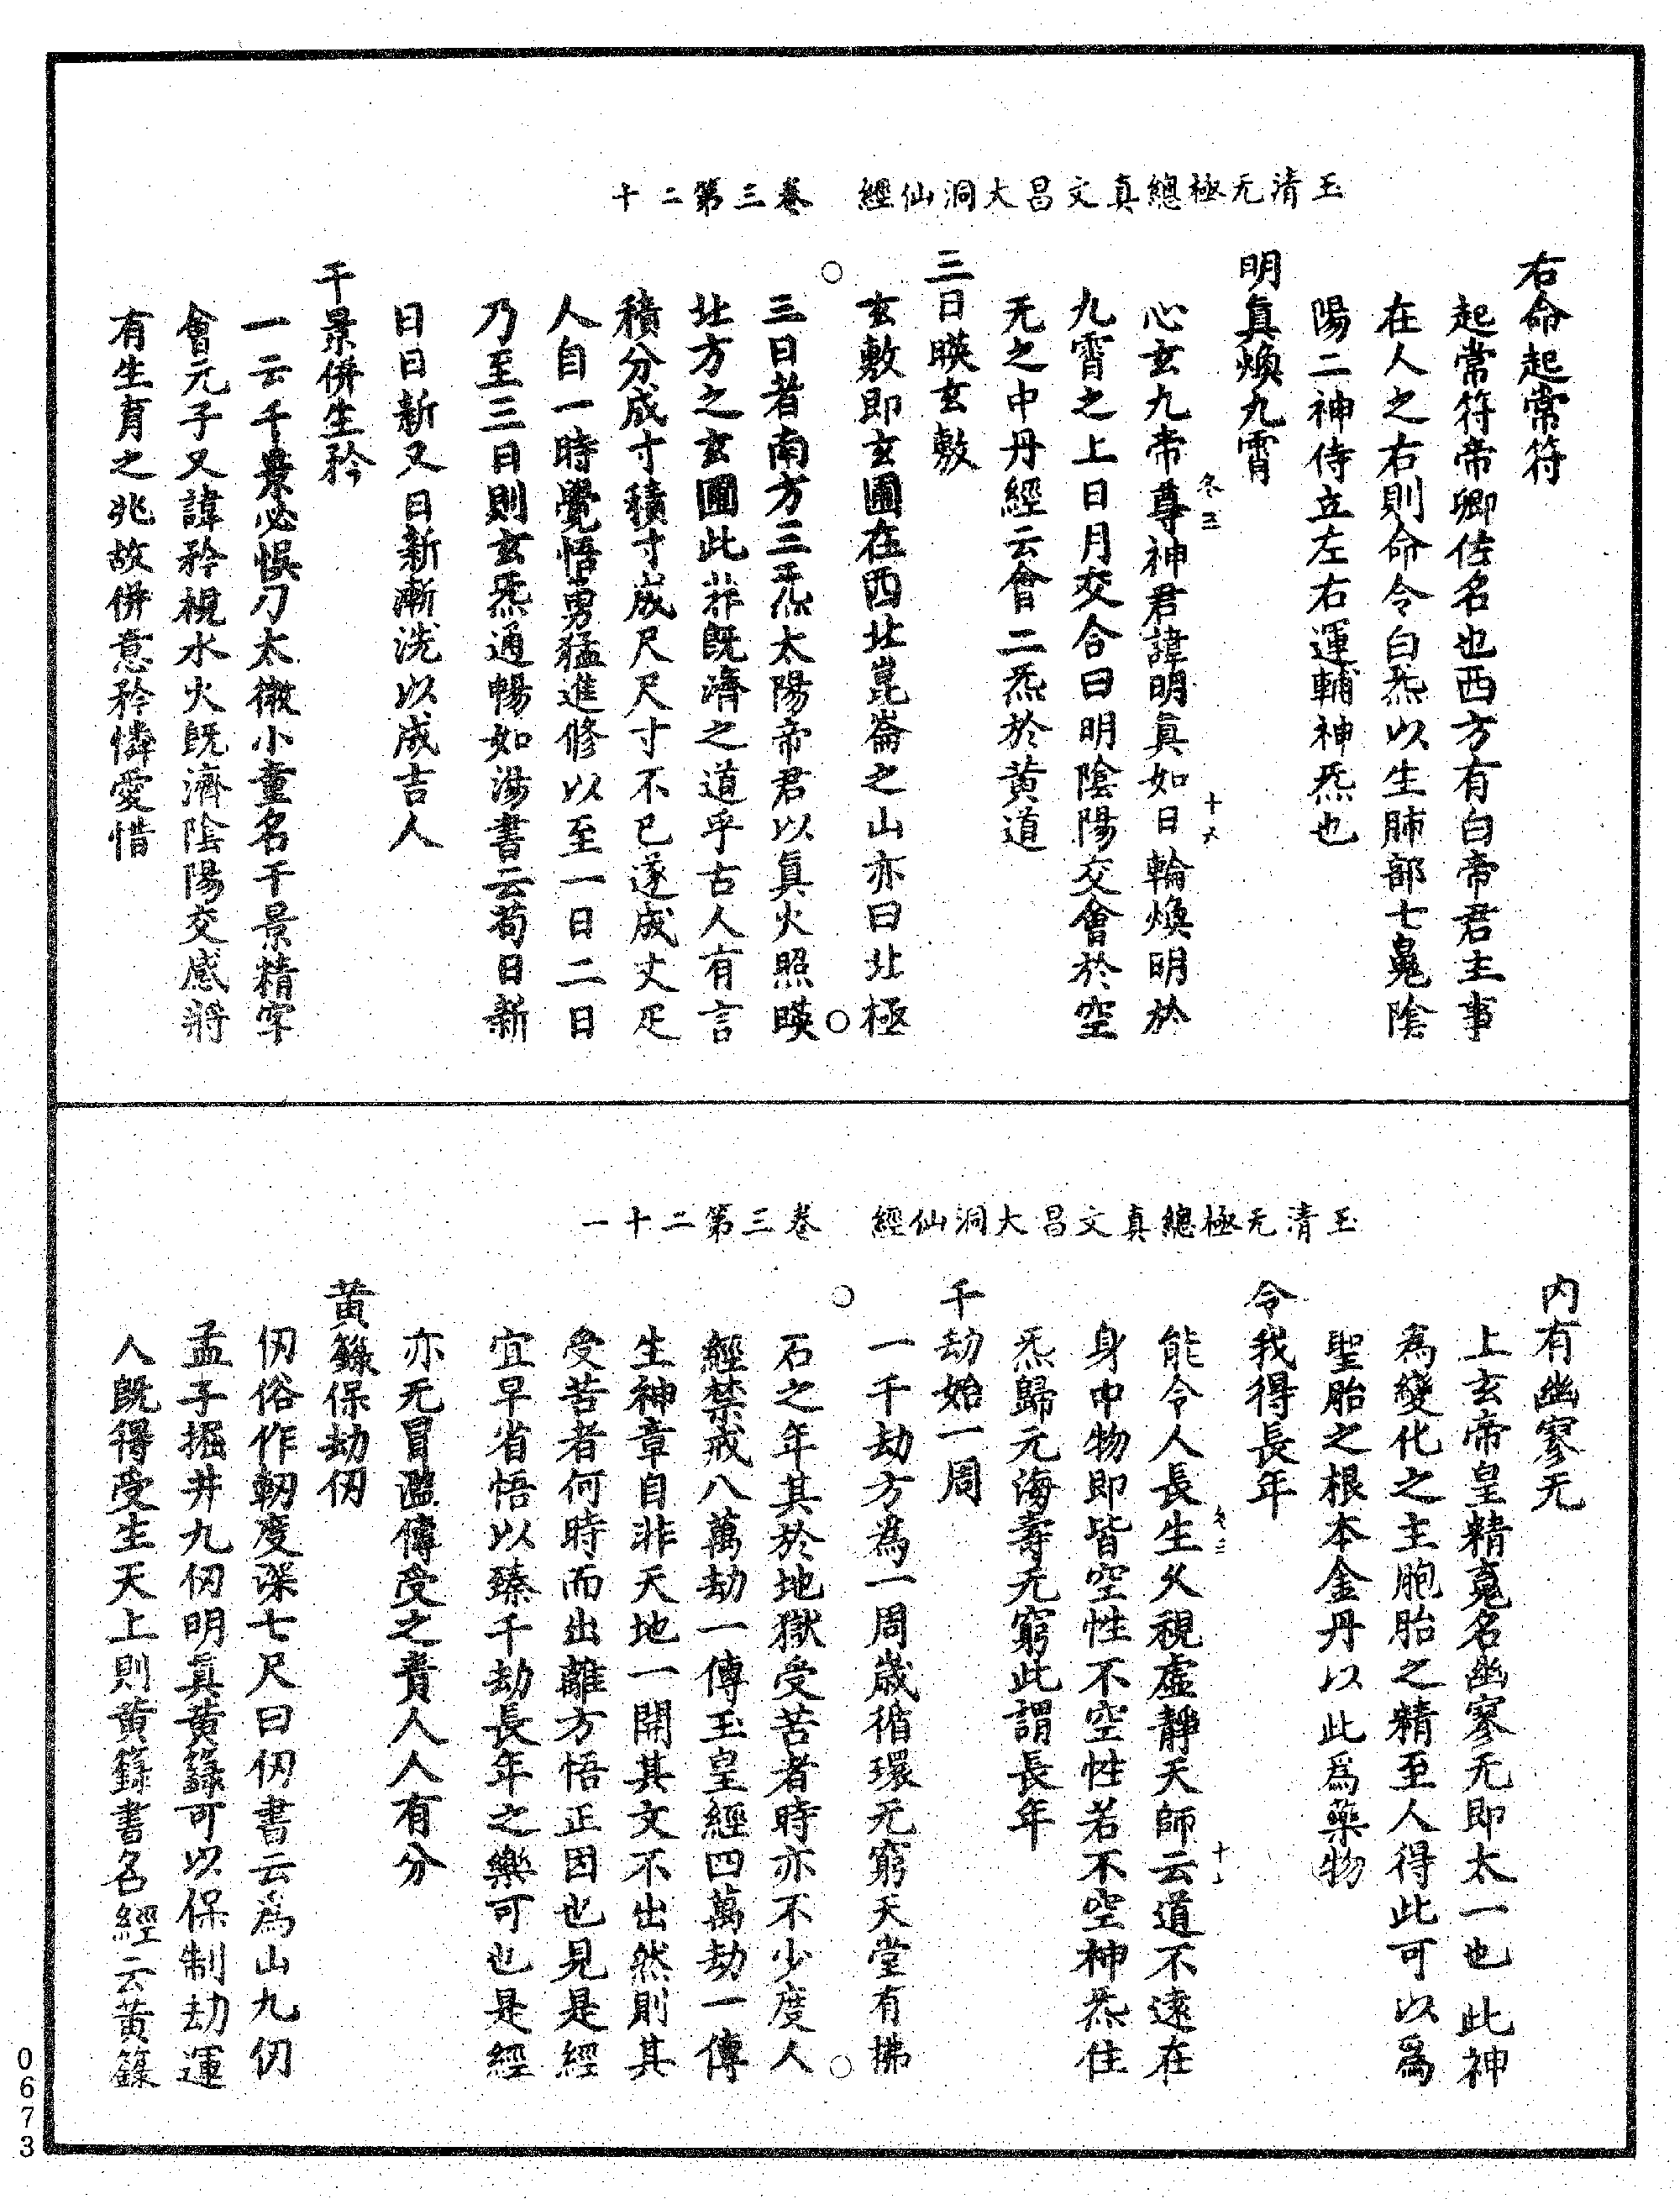 玉清无極總真文昌大洞仙經　卷三第二十
右命起常符
起常符帝卿佐名也西方有白帝君主事
在人之右則命令白炁以生肺部七䰟陰
陽二神侍立左右運輔神炁也
明真煥九霄
心玄九帝尊神君諱明真如日輪煥明於
冬三　十六
九霄之上日月交合曰明陰陽交會於空
无之中丹經云會二炁於黃道
三日暎玄敷
玄敷即玄圃在西北崑崙之山亦曰北極
三日者南方三炁太陽帝君以真火照暎
北方之玄圃此非既濟之道乎古人有言
積分成寸積寸成尺尺寸不已遂成丈疋
人自一時覺悟勇猛進修以至一日二日
乃至三日則玄炁通暢如湯書云苟日新
日日新又日新漸洗以成吉人
千景併生矜
一云千景必悞刀太微小童名千景精字
會元子又諱矜視水火既濟陰陽交感將
有生育之兆故併意矜憐愛惜
玉清无極總真文昌大洞仙經　卷三第二十一
内有幽寥无
上玄帝皇精䰟名幽寥无即太一也此神
為變化之主胞胎之精至人得此可以爲
聖胎之根本金丹以此爲藥物
令我得長年
能令人長生久視虛靜天師云道不遠在
冬三　十
身中物即皆空性不空性若不空神炁住
炁歸元海壽无窮此謂長年
千劫始一周
一千劫方為一周歲循環无窮天堂有拂
石之年其於地獄受苦者時亦不少度人
經禁戒八萬劫一傳玉皇經四萬劫一傳
生神章自非天地一開其文不出然則其
受苦者何時而出離方悟正因也見是經
宜早省悟以臻千劫長年之樂可也是經
亦无冒濫傳受之責人人有分
黃籙保劫仞
仞俗作軔度深七尺曰仞書云爲山九仞
孟子掘井九仞明真黃籙可以保制劫運
人既得受生天上則黃籙書名經云黃籙
0673